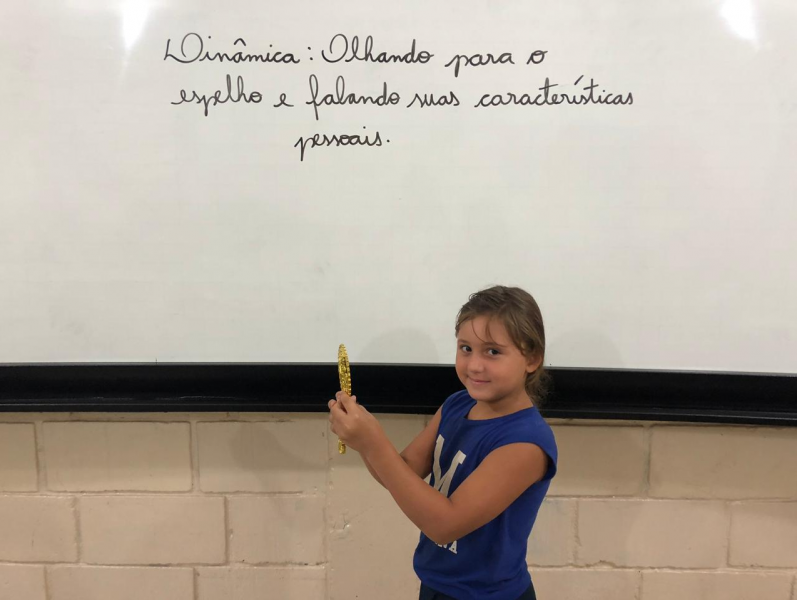 Dinâmica: Olhando para o
espelho e falando suas características
pessoais.
M